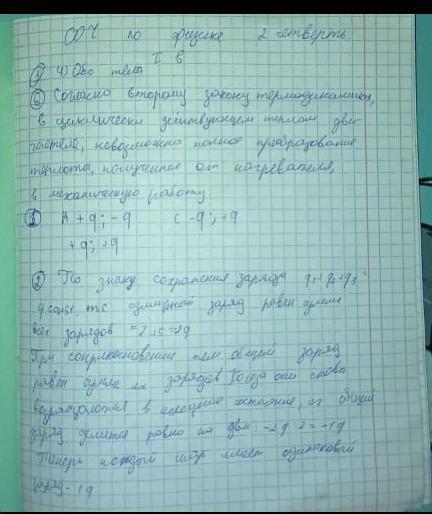 СОЧ по физике 2 четверть.
I в
① 4) Оба тела
⑥ Согласно второму закону термодинамики,
в циклически действующем тепловом дви-
гателе, невозможно полное преобразование
теплоты, полученное от нагревателя,
в механическую работу
А +q; -q С -q; +q
+q; +q
② По знаку сохранения заряда q₁+q₂+q₃=
q const, т.с суммарный заряд равен сумме
всех зарядов
При соприкосновении тел общий заряд
равен сумме их зарядов Когда они снова
возращаются в исходное состояние, их общий
заряд делится равно на два: -2q : 2 = -1q
Теперь каждый шар имеет одинаковый
заряд - 1q